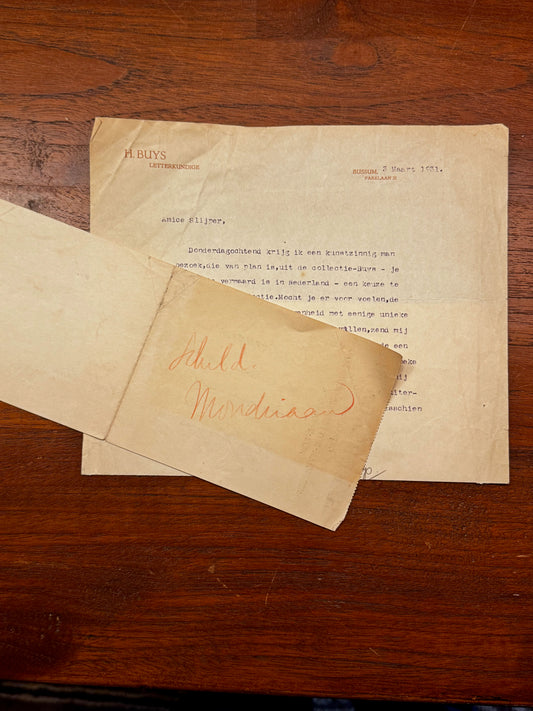 H. BUYS
LETTERKUNDIGE
BUSSUM, 3 Maart 1931.
PARKLAAN
Amice Slijper,
Donderdagochtend krijg ik een kunstzinnig man
bezoek,die van plan is,uit de collectie-Buys - je
vermaard ie in Nederland - een keuze te
ctie.Mocht je er voor voelen,de
enheid met eenige unieke
willen,zend mij
een
uiter-
misschien
Schuld.
Mondriaan